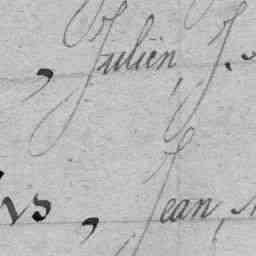 , Julien, J.
, Jean,